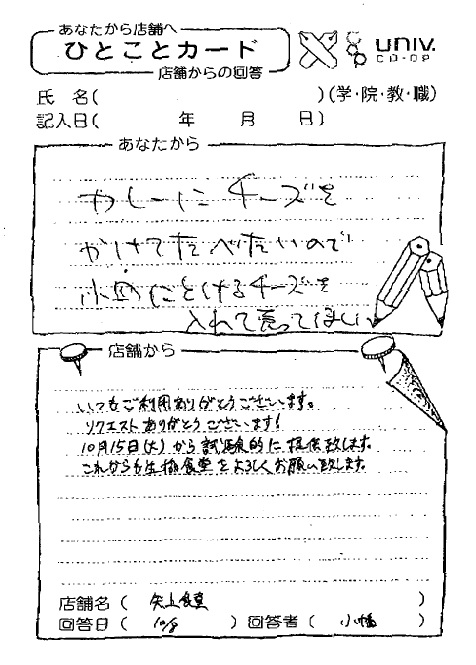 あなたから店舗へ
ひとことカード
店舗からの回答
UNIV.
CO-OP
氏 名( )(学・院・教・職)
記入日( 年 月 日)
あなたから
カレーにチーズを
かけてたべたいので
小皿にとけるチーズを
入れて売ってほしい
店舗から
いつもご利用ありがとうございます。
リクエストありがとうございます!
10月15日(火)から試験的に提供致します。
これからも生協食堂をよろしくお願い致します。
店舗名( 矢上食堂 )
回答日( 10/8 )回答者( 小幡 )